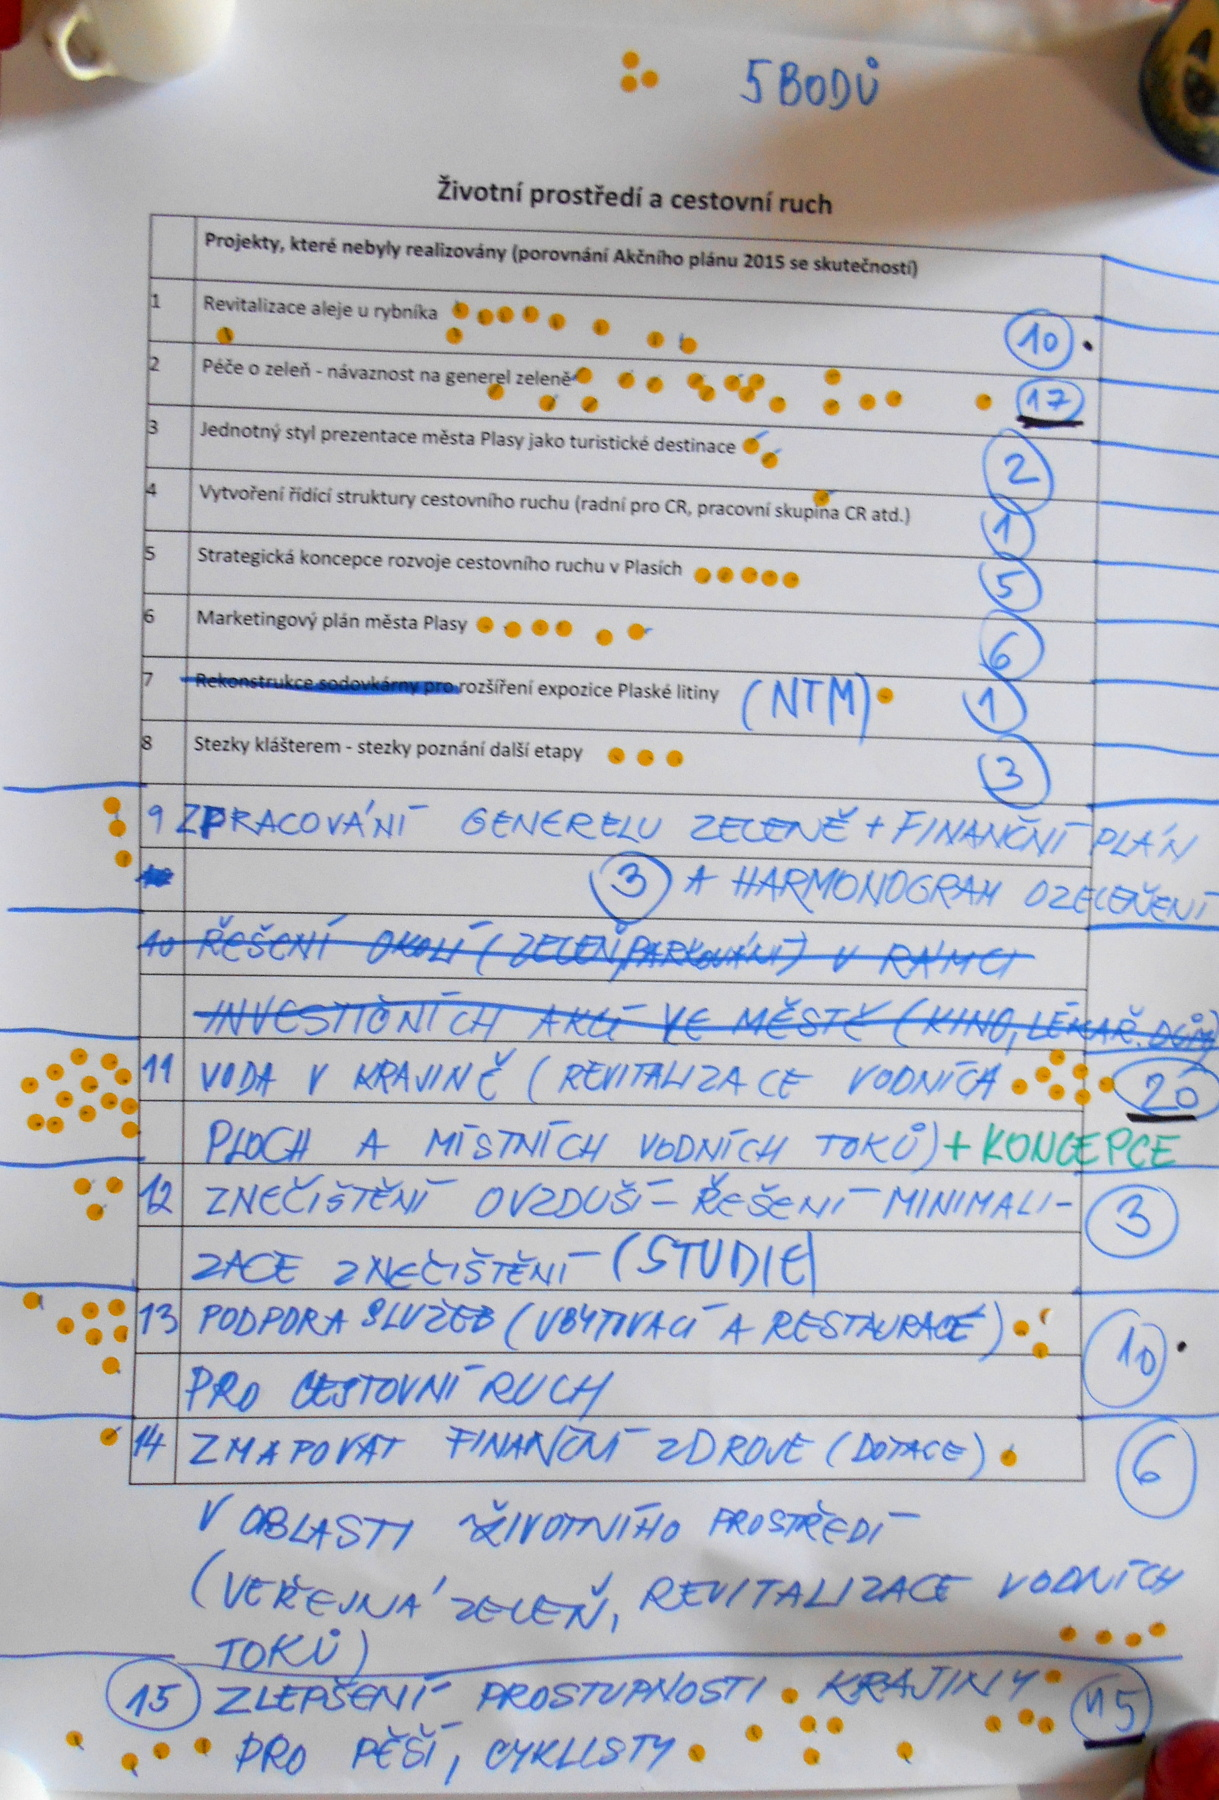 5 BODŮ
Životní prostředí a cestovní ruch
Projekty, které nebyly realizovány (porovnání Akčního plánu 2015 se skutečností)
1 Revitalizace aleje u rybníka 10
2 Péče o zeleň - návaznost na generel zeleně 17
3 Jednotný styl prezentace města Plasy jako turistické destinace 2
4 Vytvoření řídící struktury cestovního ruchu (radní pro CR, pracovní skupina CR atd.) 1
5 Strategická koncepce rozvoje cestovního ruchu v Plasích 5
6 Marketingový plán města Plasy 6
7 Rekonstrukce sodovkárny pro rozšíření expozice Plaské litiny (NTM) 1
8 Stezky klášterem - stezky poznání další etapy 3
9 ZPRACOVÁNÍ GENERELU ZELENĚ + FINANČNÍ PLÁN
3 A HARMONOGRAM OZELENĚNÍ
10 ŘEŠENÍ OKOLÍ (ZELEŇ, PARKOVÁNÍ) V RÁMCI
INVESTIČNÍCH AKCÍ VE MĚSTĚ (KINO, LÉKAŘ. DŮM)
11 VODA V KRAJINĚ (REVITALIZACE VODNÍCH 20
PLOCH A MÍSTNÍCH VODNÍCH TOKŮ) + KONCEPCE
12 ZNEČIŠTĚNÍ OVZDUŠÍ - ŘEŠENÍ MINIMALI- 3
ZACE ZNEČIŠTĚNÍ (STUDIE)
13 PODPORA SLUŽEB (UBYTOVACÍ A RESTAURACE) 10
PRO CESTOVNÍ RUCH
14 ZMAPOVAT FINANČNÍ ZDROJE (DOTACE) 6
V OBLASTI ŽIVOTNÍHO PROSTŘEDÍ
(VEŘEJNÁ ZELEŇ, REVITALIZACE VODNÍCH
TOKŮ)
15 ZLEPŠENÍ PROSTUPNOSTI KRAJINY 15
PRO PĚŠÍ, CYKLISTY